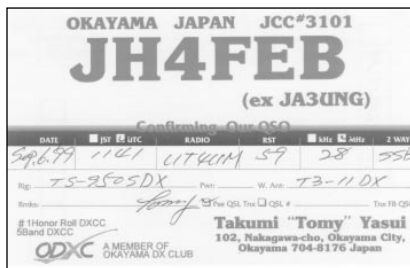 OKAYAMA JAPAN JCC#3101
JH4FEB
(ex JA3UNG)
Confirming Our QSO
DATE JST UTC RADIO RST kHz MHz 2 WAY
Sep.6.99 1141 UT4UM 59 28 SSB
Rig: TS-950SDX Pwr: W. Ant: T3-11DX
Rmks: Tomy Pse QSL Tnx QSL # Tnx FB QSO
#1Honor Roll DXCC
5Band DXCC
ODXC A MEMBER OF
OKAYAMA DX CLUB
Takumi "Tomy" Yasui
102, Nakagawa-cho, Okayama City,
Okayama 704-8176 Japan